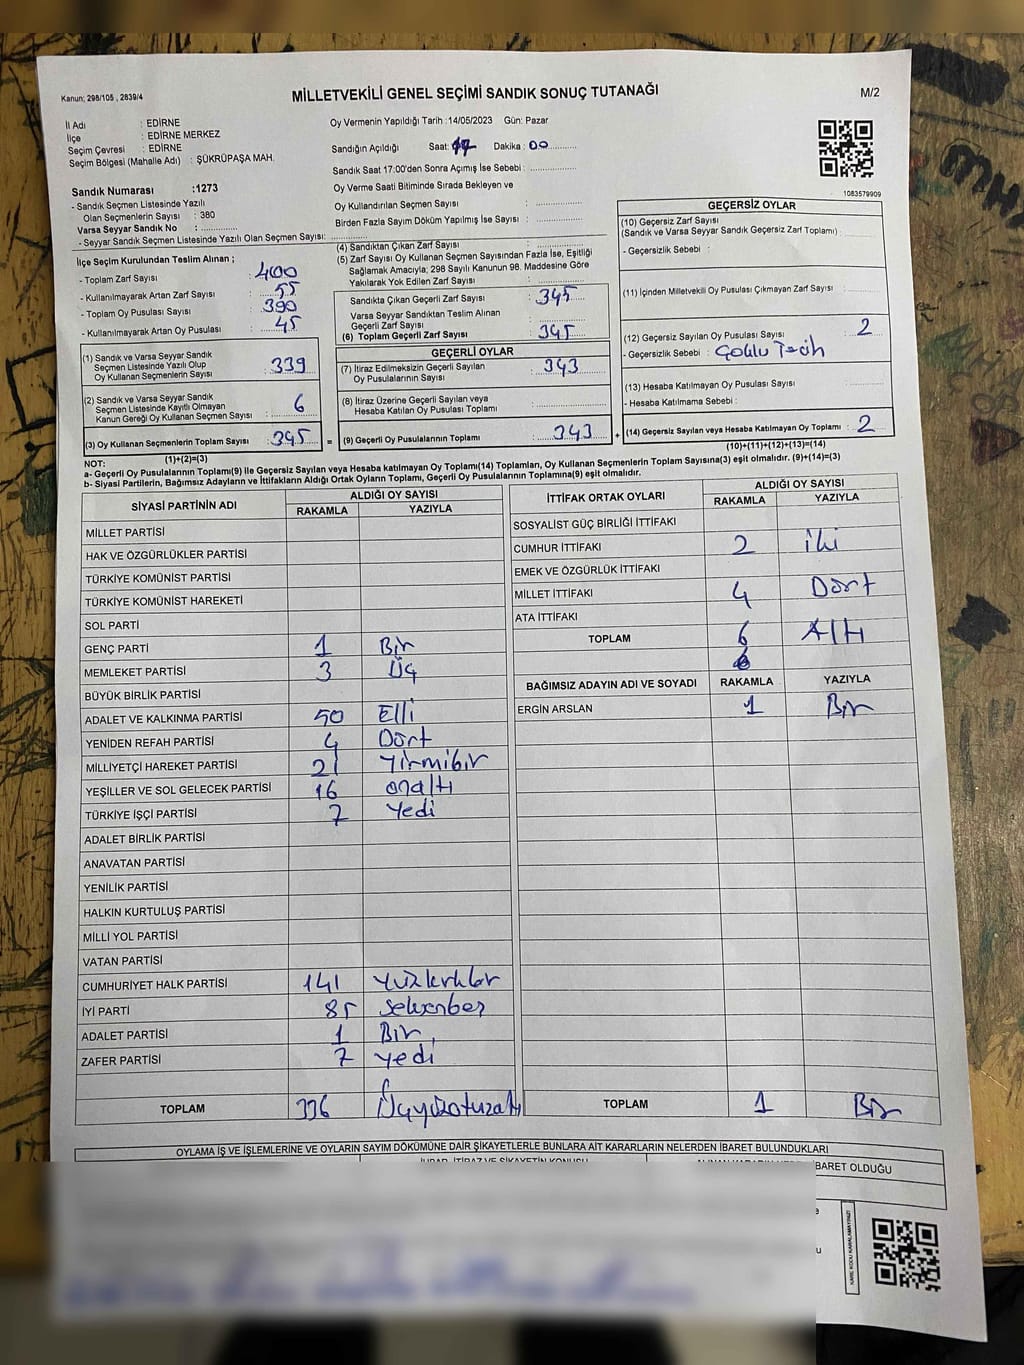 Kanun; 298/105 , 2839/4
MİLLETVEKİLİ GENEL SEÇİMİ SANDIK SONUÇ TUTANAĞI
M/2
İl Adı : EDİRNE
İlçe : EDİRNE MERKEZ
Seçim Çevresi : EDİRNE
Seçim Bölgesi (Mahalle Adı) : ŞÜKRÜPAŞA MAH.
Sandık Numarası :1273
- Sandık Seçmen Listesinde Yazılı
Olan Seçmenlerin Sayısı : 380
Varsa Seyyar Sandık No : ..............
- Seyyar Sandık Seçmen Listesinde Yazılı Olan Seçmen Sayısı:
Oy Vermenin Yapıldığı Tarih :14/05/2023 Gün: Pazar
Sandığın Açıldığı Saat: 17 Dakika : 00
Sandık Saat 17:00'den Sonra Açımış İse Sebebi :
Oy Verme Saati Bitiminde Sırada Bekleyen ve
Oy Kullandırılan Seçmen Sayısı :
Birden Fazla Sayım Döküm Yapılmış İse Sayısı :
1083579909
İlçe Seçim Kurulundan Teslim Alınan ;
- Toplam Zarf Sayısı : 400
- Kullanılmayarak Artan Zarf Sayısı : 55
- Toplam Oy Pusulası Sayısı : 390
- Kullanılmayarak Artan Oy Pusulası : 45
(1) Sandık ve Varsa Seyyar Sandık
Seçmen Listesinde Yazılı Olup
Oy Kullanan Seçmenlerin Sayısı : 339
(2) Sandık ve Varsa Seyyar Sandık
Seçmen Listesinde Kayıtlı Olmayan
Kanun Gereği Oy Kullanan Seçmen Sayısı : 6
(3) Oy Kullanan Seçmenlerin Toplam Sayısı : 345
(1)+(2)=(3)
(4) Sandıktan Çıkan Zarf Sayısı :
(5) Zarf Sayısı Oy Kullanan Seçmen Sayısından Fazla İse, Eşitliği
Sağlamak Amacıyla; 298 Sayılı Kanunun 98. Maddesine Göre
Yakılarak Yok Edilen Zarf Sayısı :
Sandıkta Çıkan Geçerli Zarf Sayısı : 345
Varsa Seyyar Sandıktan Teslim Alınan
Geçerli Zarf Sayısı :
(6) Toplam Geçerli Zarf Sayısı : 345
GEÇERLİ OYLAR
(7) İtiraz Edilmeksizin Geçerli Sayılan
Oy Pusulalarının Sayısı : 343
(8) İtiraz Üzerine Geçerli Sayılan veya
Hesaba Katılan Oy Pusulası Toplamı :
= (9) Geçerli Oy Pusulalarının Toplamı : 343 +
GEÇERSİZ OYLAR
(10) Geçersiz Zarf Sayısı
(Sandık ve Varsa Seyyar Sandık Geçersiz Zarf Toplamı) :
- Geçersizlik Sebebi :
(11) İçinden Milletvekili Oy Pusulası Çıkmayan Zarf Sayısı :
(12) Geçersiz Sayılan Oy Pusulası Sayısı : 2
- Geçersizlik Sebebi : Çoklu Tecih
(13) Hesaba Katılmayan Oy Pusulası Sayısı :
- Hesaba Katılmama Sebebi :
(14) Geçersiz Sayılan veya Hesaba Katılmayan Oy Toplamı : 2
(10)+(11)+(12)+(13)=(14)
NOT:
a- Geçerli Oy Pusulalarının Toplamı(9) ile Geçersiz Sayılan veya Hesaba katılmayan Oy Toplamı(14) Toplamları, Oy Kullanan Seçmenlerin Toplam Sayısına(3) eşit olmalıdır. (9)+(14)=(3)
b- Siyasi Partilerin, Bağımsız Adayların ve İttifakların Aldığı Ortak Oyların Toplamı, Geçerli Oy Pusulalarının Toplamına(9) eşit olmalıdır.
SİYASİ PARTİNİN ADI ALDIĞI OY SAYISI
RAKAMLA YAZIYLA
MİLLET PARTİSİ
HAK VE ÖZGÜRLÜKLER PARTİSİ
TÜRKİYE KOMÜNİST PARTİSİ
TÜRKİYE KOMÜNİST HAREKETİ
SOL PARTİ
GENÇ PARTİ 1 Bir
MEMLEKET PARTİSİ 3 Üç
BÜYÜK BİRLİK PARTİSİ
ADALET VE KALKINMA PARTİSİ 50 Elli
YENİDEN REFAH PARTİSİ 4 Dört
MİLLİYETÇİ HAREKET PARTİSİ 21 Yirmibir
YEŞİLLER VE SOL GELECEK PARTİSİ 16 onaltı
TÜRKİYE İŞÇİ PARTİSİ 7 Yedi
ADALET BİRLİK PARTİSİ
ANAVATAN PARTİSİ
YENİLİK PARTİSİ
HALKIN KURTULUŞ PARTİSİ
MİLLİ YOL PARTİSİ
VATAN PARTİSİ
CUMHURİYET HALK PARTİSİ 141 Yüzkırkbir
İYİ PARTİ 85 Seksenbeş
ADALET PARTİSİ 1 Bir
ZAFER PARTİSİ 7 Yedi
TOPLAM 336 Üçyüzotuzaltı
İTTİFAK ORTAK OYLARI ALDIĞI OY SAYISI
RAKAMLA YAZIYLA
SOSYALİST GÜÇ BİRLİĞİ İTTİFAKI
CUMHUR İTTİFAKI 2 iki
EMEK VE ÖZGÜRLÜK İTTİFAKI
MİLLET İTTİFAKI 4 Dört
ATA İTTİFAKI
TOPLAM 6 Altı
6
BAĞIMSIZ ADAYIN ADI VE SOYADI RAKAMLA YAZIYLA
ERGİN ARSLAN 1 Bir
TOPLAM 1 Bir
OYLAMA İŞ VE İŞLEMLERİNE VE OYLARIN SAYIM DÖKÜMÜNE DAİR ŞİKAYETLERLE BUNLARA AİT KARARLARIN NELERDEN İBARET BULUNDUKLARI
BARET OLDUĞU
KARE KODU KARALAMAYINIZ!